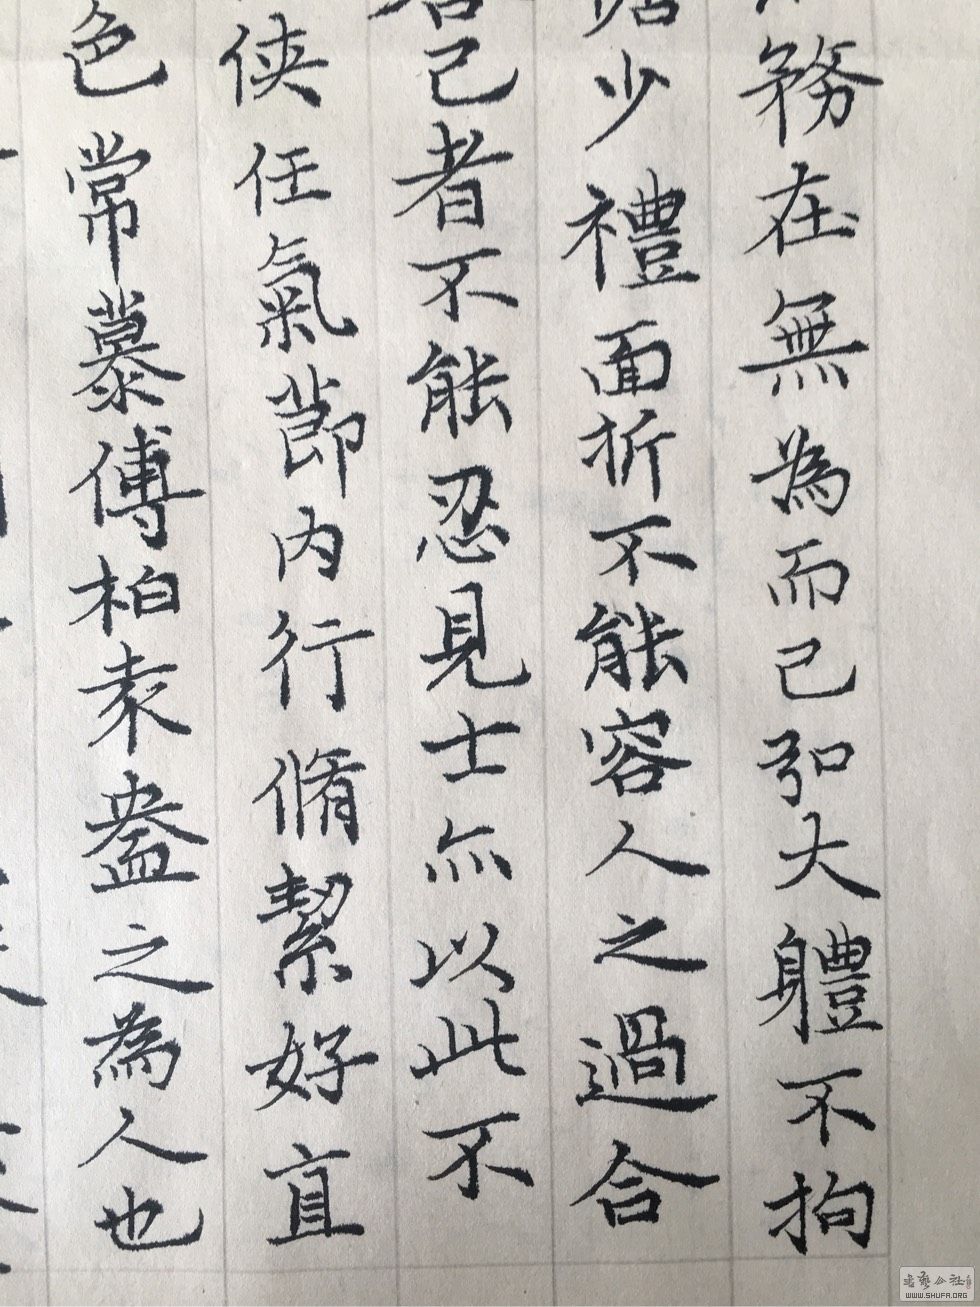 務在無為而已弘大體不拘
少禮面折不能容人之過合
己者不能忍見士亦以此不
侠任氣節内行脩絜好直
色常慕傅柏袁盎之為人也
WWW.SHUFA.ORG